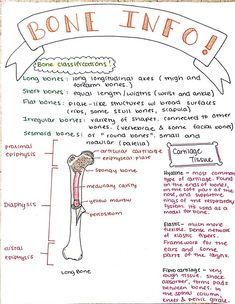 BONE INFO!
Bone classifications!
Long bones: long longitudinal axes (thigh and
forearm bones)
Short bones: equal length/widths (wrist and ankle)
Flat bones: plate-like structures w/ broad surfaces
(ribs, some skull bones, scapula)
Irregular bones: variety of shapes, connected to other
bones. (vertebrae & some facial bones)
Sesmoid bones: or "round bones". small and
nodular (patella)
proximal
epiphysis
Diaphysis
distal
epiphysis
articular cartilage
epiphyseal plate
spongy bone
medullary cavity
yellow marrow
periosteum
Long Bone
Cartilage
Tissue
Hyaline - most common
type of cartilage. Found
on the ends of bones,
on the soft part of the
nose, and supportive
rings of the respiratory
system. It's used as a
model for bone.
Elastic - much more
flexible. Dense network
of elastic fibers.
Framework for the
ears and some
parts of the larynx.
Fibrocartilage - very
tough tissue. Shock
absorber, forms pads
between bones. In
the spinal column,
knees & pelvic girdle.